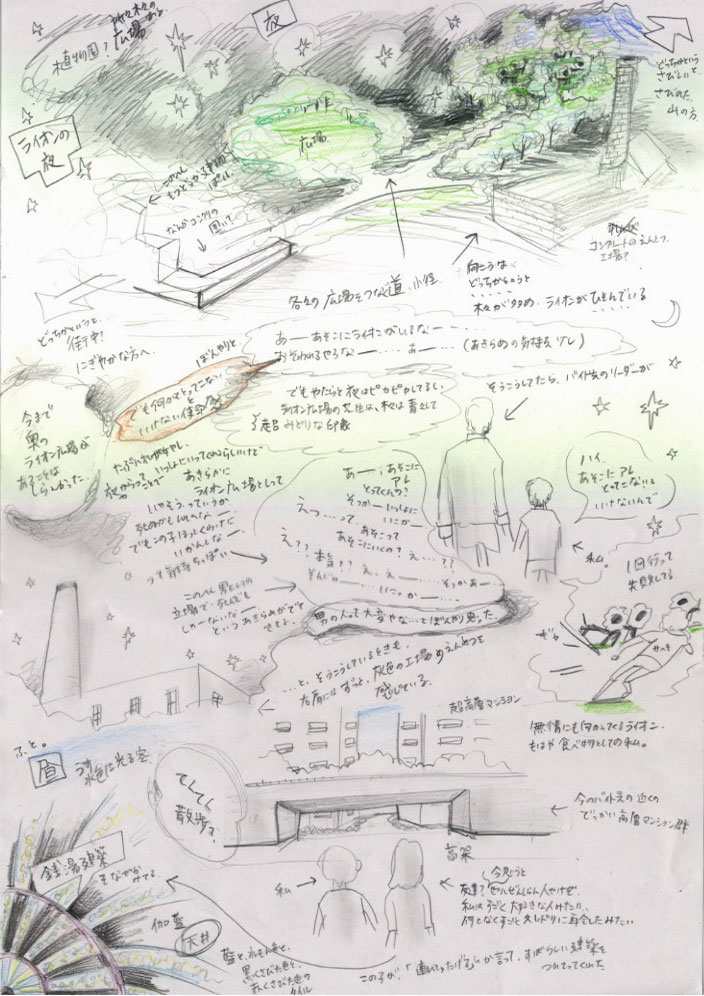 夜
植物園?
所々木々の
広場ある
ライオンの
夜
広場
このへん
なんかコンクリの
囲い?
どっちかという
さびしいと、
さびれた、
山の方
コンクリートのえんとつ、
工場?
各々の広場をつなぐ道、小径
向こうは
どっちかというと
木々が多め、ライオンがひそんでいる
どっちかというと、
街中!
にぎやかな方へ。
あーあそこにライオンがいるなー
おそわれるやろなー……あー…
(あきらめの気持ち
ぼんやりと
でも何かをとってこない
と
いけない使命感
でもやたらと夜はピカピカしてるし
ライオン広場の芝生は、木々は青々して
超みどりな印象
そうこうしてたら、バイト先のリーダーが
今まで
奥の
ライオン広場が
あることは
しらんかった…
あきらかに
ライオン広場として
いやそう、っていうか
死ぬかもしれんなー
でもこの子ほっとくわけに
いかんしなー
って気持ちっぽい
あー、あそこに
アレ
とってくんの?
そっかーいっしょに
いこかー
えっ…って、
あそこって
あそこにいくの?え…??
え??本当??えーえー
そっかあー…
いこっかー…
ハイ、
あそこにアレ
とってこないと
いけないんで
私。
1回行って
失敗してる
このへん男としての
立場で、死んでも
しゃーないなー
というあきらめがでて
きてる。
男の人って大変やな…とぼんやり思った。
…と、そうこうしているときも、
右肩にはずっと、灰色の工場のえんとつを
感じている。
無情にも向かってくるライオン。
もはや食べ物としての私。
ふと。
昼
水色に光る空
超高層マンション
てくてく
散歩?
今のバイト先の近くの
でっかい高層マンション群
高架
銭湯建築
そなながめ
みてる
私
今思うと
友達?ぜんぜんしらん人やけど、
私はすごく大好きな人みたい!!、
何となくすごく久しぶりに再会したみたい
伽藍
天井
藍と、れもん色と、
黒くさびた色と、
赤くさびた色の
タイル
この子が、「連れてったげる」と言って、すばらしい建築を
つれてってくれた